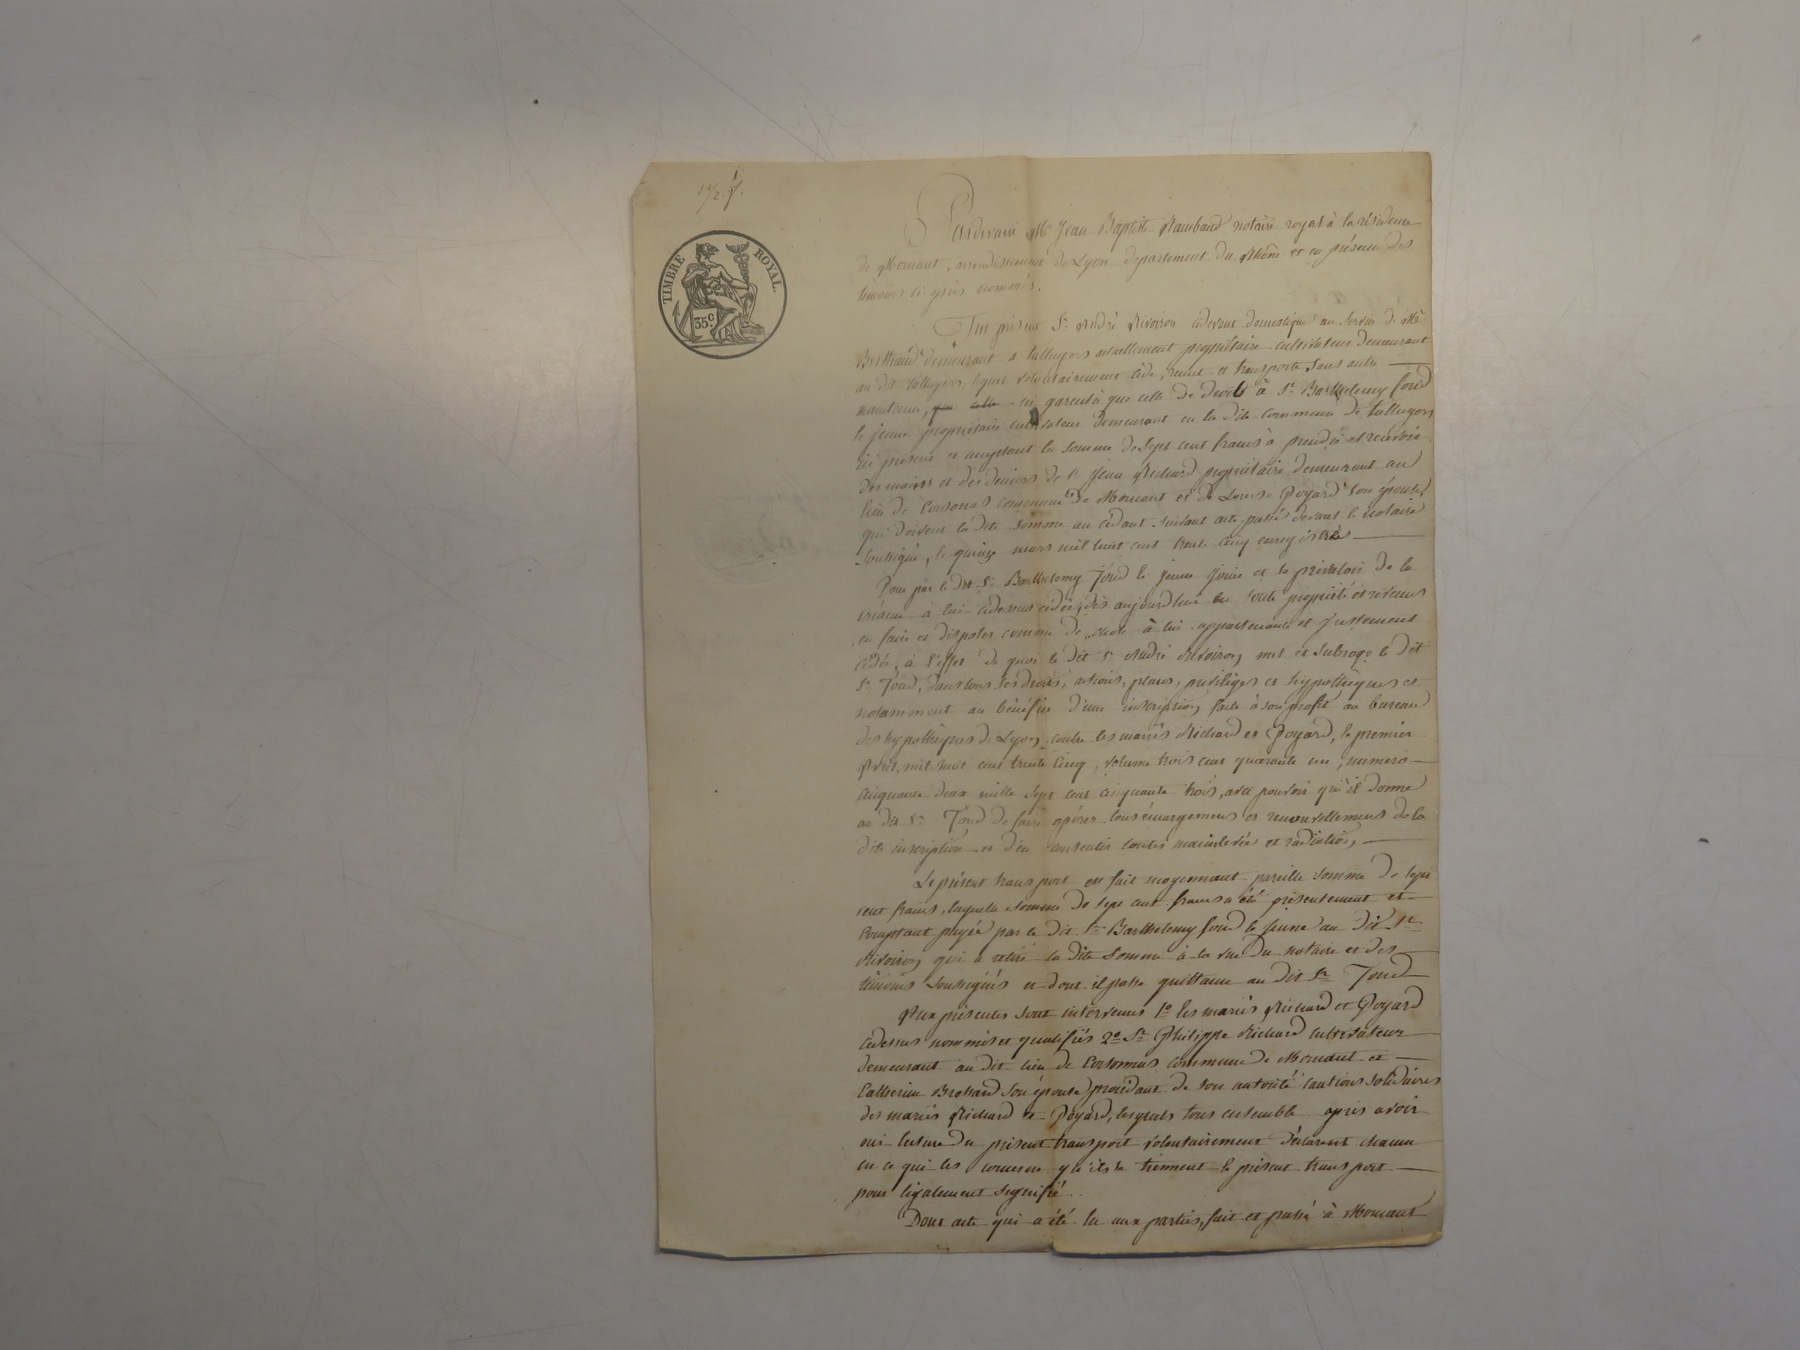 1 1/2.
TIMBRE ROYAL.
35 c.
Pardevant Me Jean Baptiste Rambaud notaire royal à la résidence
de Mornant, arrondissement de Lyon département du Rhône et en présence des
témoins ci après nommés.
Fut présent Sr André Rivoiron cidevant domestique au service de Me
demeurant à tallugers actuellement propriétaire cultivateur demeurant
au dit tallugers, lequel volontairement cède, remet et transporte sans autre
maintenue, ni garentie que celle de droit à Sr Barthelemy fond
le jeune propriétaire cultivateur demeurant en la dite commune de tallugers
ici présent et acceptant la somme de sept cent francs à prendre et recevoir
des mains et des deniers de Sr Jean Richard propriétaire demeurant au
lieu de Corsonas commune de Mornant et de Louise Poyard son épouse,
qui doivent la dite somme au cédant suivant acte passé devant le notaire
soussigné, le quinze mars mil huit cent trente cinq enregistré
Pour par le dit Sr Barthelemy fond le jeune jouir et se prévaloir de la
créance à lui cidessus cédée, dès aujourdhui en toute propriété et revenus
en faire et disposer comme de chose à lui appartenante et justement
cédée, à l'effet de quoi le dit Sr André Rivoiron, met et subroge le dit
Sr Fond, dans tous ses droits, actions, places, priviléges et hypothèques et
notamment au bénéfice d'une inscription faite à son profit au bureau
des hypothèques de Lyon, contre les mariés Richard et Poyard, le premier
Avril mil huit cent trente cinq, volume trois cent quarante un, numéro
cinquante deux mille sept cent cinquante trois, avec pouvoir qu'il donne
au dit Sr Fond de faire opérer tous émargemens et renouvellemens de la
dite inscription et d'en consentir toutes mainlevée et radiation,
Le présent transport est fait moyennant pareille somme de sept
cent francs, laquelle somme de sept cent francs a été présentement et
comptant payée par le dit Sr Barthelemy fond le jeune au dit Sr
Rivoiron qui a retiré la dite somme à la vue du notaire et des
témoins soussignés et dont il passe quittance au dit Sr Fond
Aux présentes sont intervenus 1º les mariés Richard et Poyard
cidessus nommés et qualifiés 2º Sr Philippe Richard cultivateur
demeurant au dit lieu de Corsonnas commune de Mornant et
Catherine Brossard son épouse procédant de son autorité cautions solidaires
des mariés Richard et Poyard, lesquels tous ensemble après avoir
oui lecture du présent transport volontairement déclarent chacun
en ce qui les concerne qu'ils tiennent le présent transport
pour légalement signifié.
Dont acte qui a été lu aux parties, fait et passé à Mornant